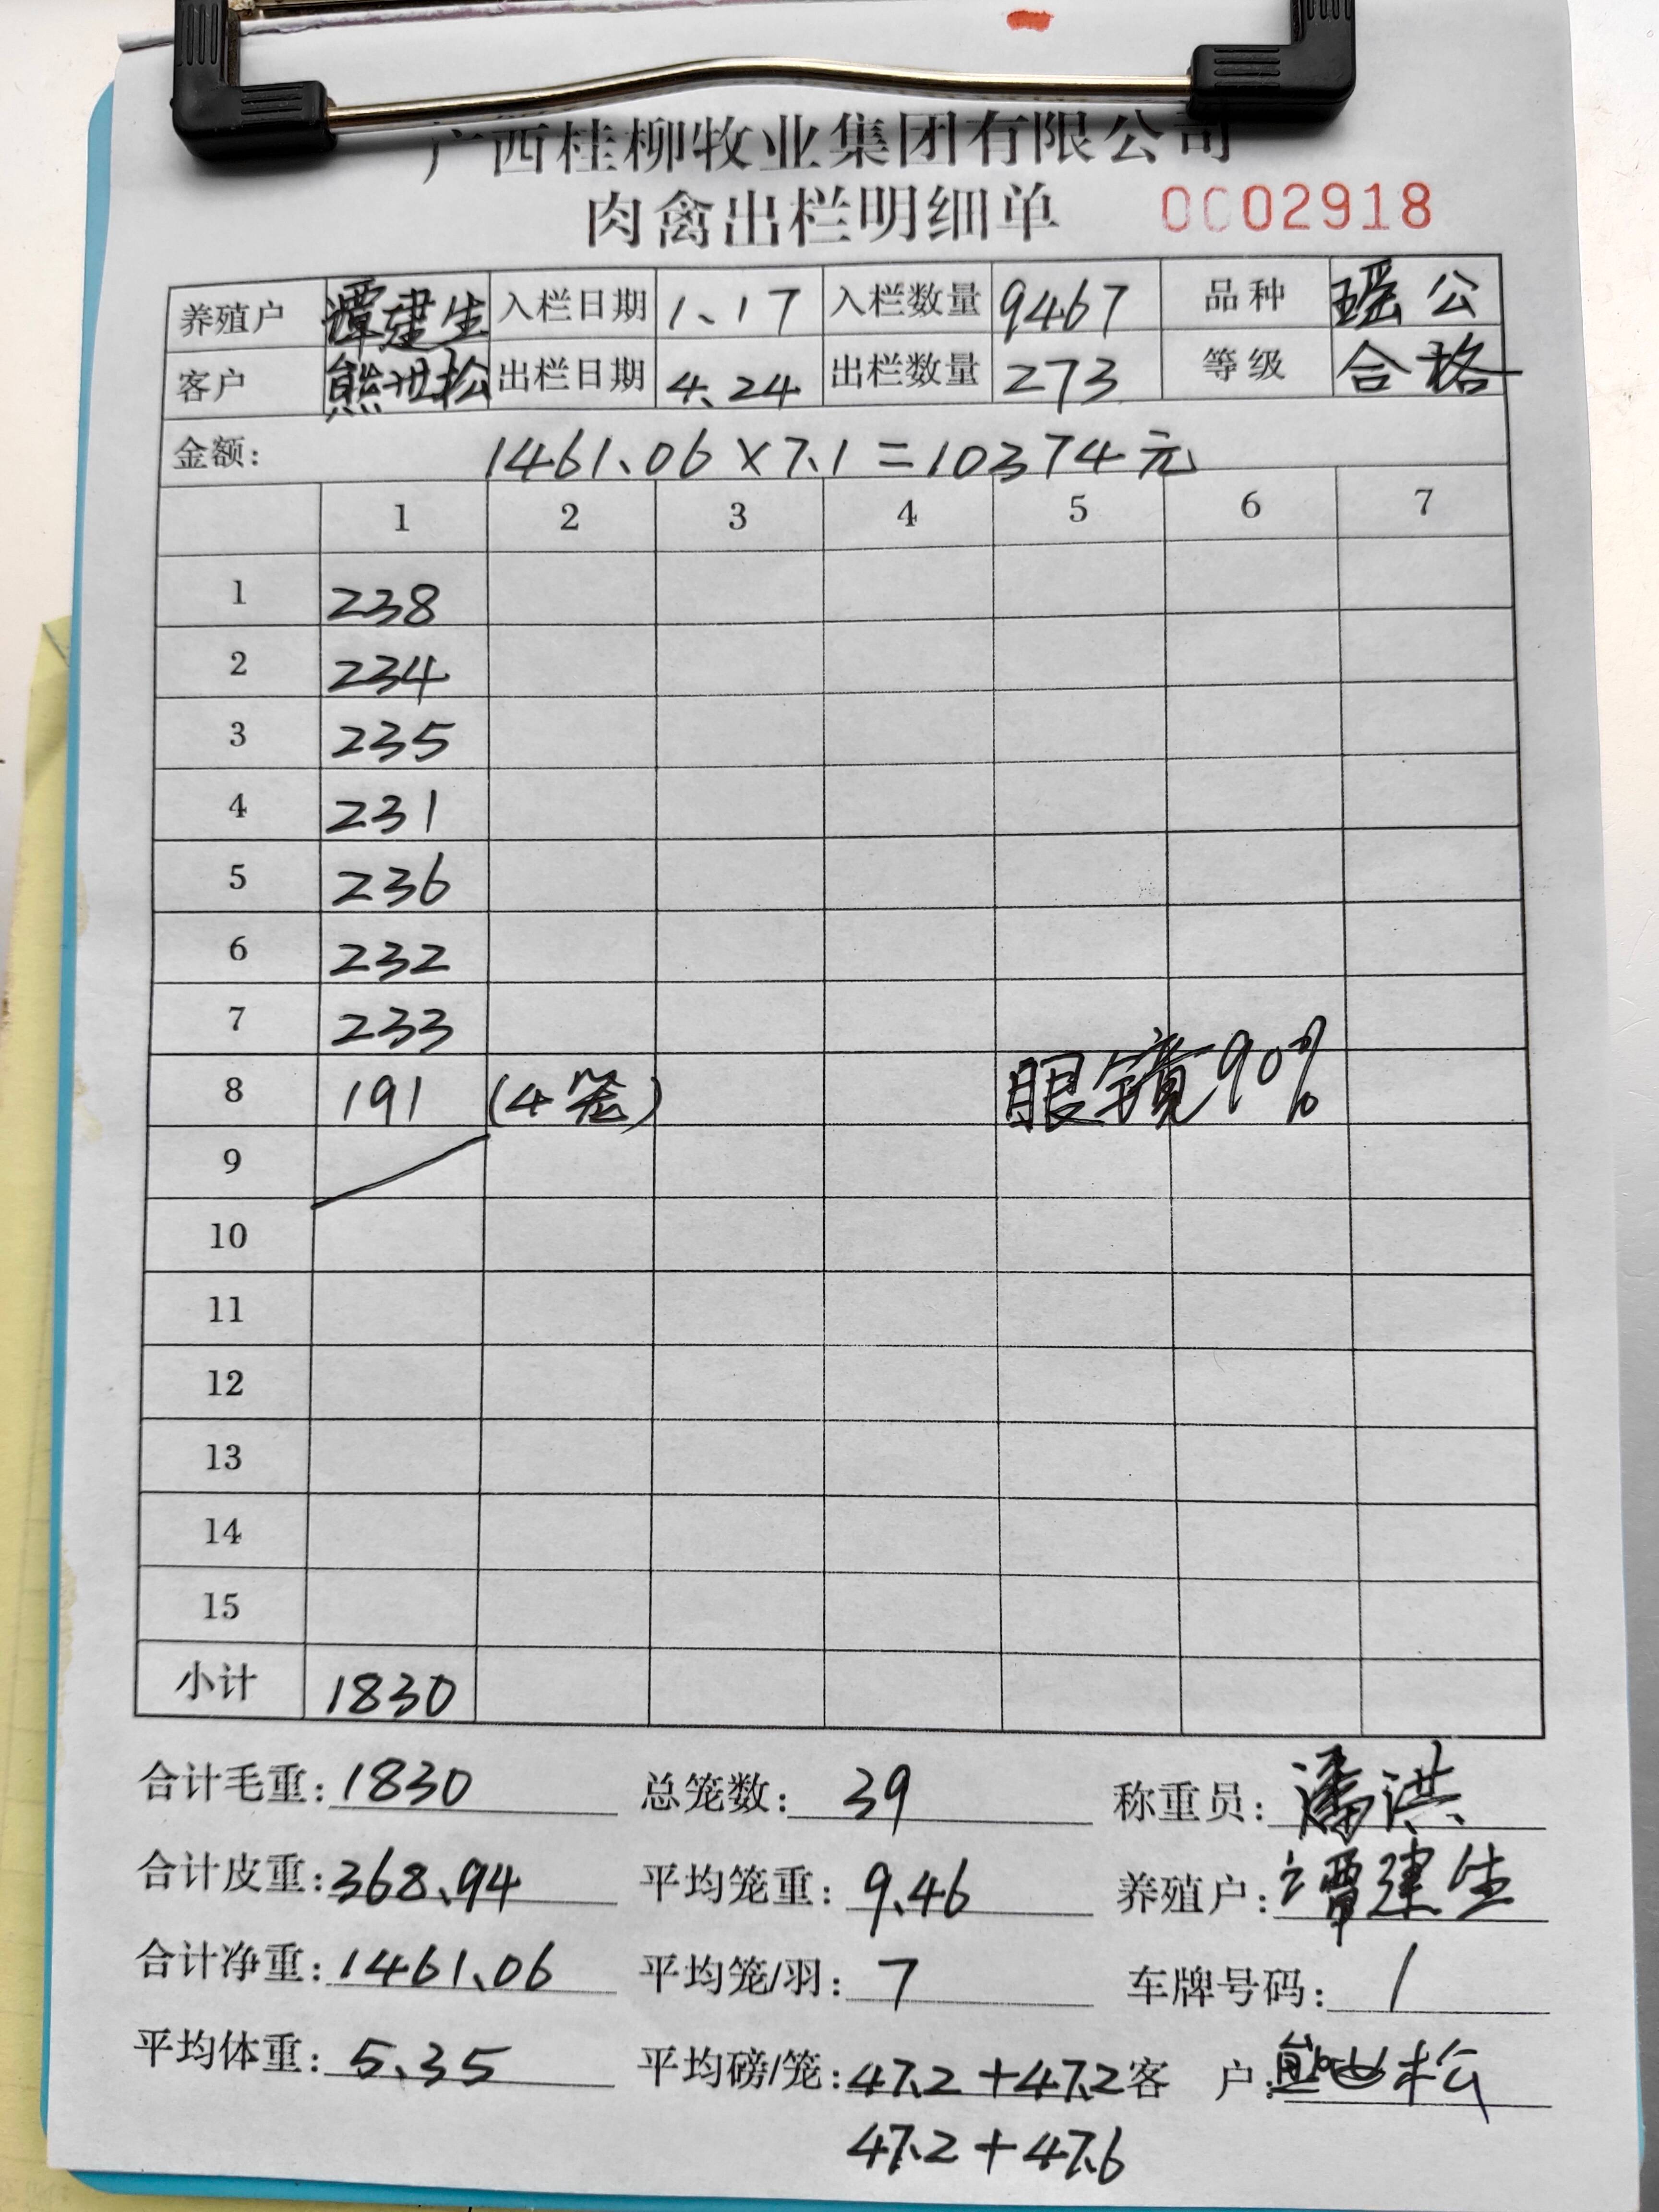 广西桂柳牧业集团有限公司
肉禽出栏明细单 0002918
养殖户 谭建生 入栏日期 1.17 入栏数量 9467 品种 瑶公
客户 熊世松 出栏日期 4.24 出栏数量 273 等级 合格
金额: 1461.06×7.1=10374元
1 2 3 4 5 6 7
1 238
2 234
3 235
4 231
5 236
6 232
7 233
8 191 (4笼) 眼镜90%
9
10
11
12
13
14
15
小计 1830
合计毛重: 1830 总笼数: 39 称重员: 潘洪
合计皮重: 368.94 平均笼重: 9.46 养殖户: 谭建生
合计净重: 1461.06 平均笼/羽: 7 车牌号码: /
平均体重: 5.35 平均磅/笼: 47.2+47.2 客户: 熊世松
47.2+47.6